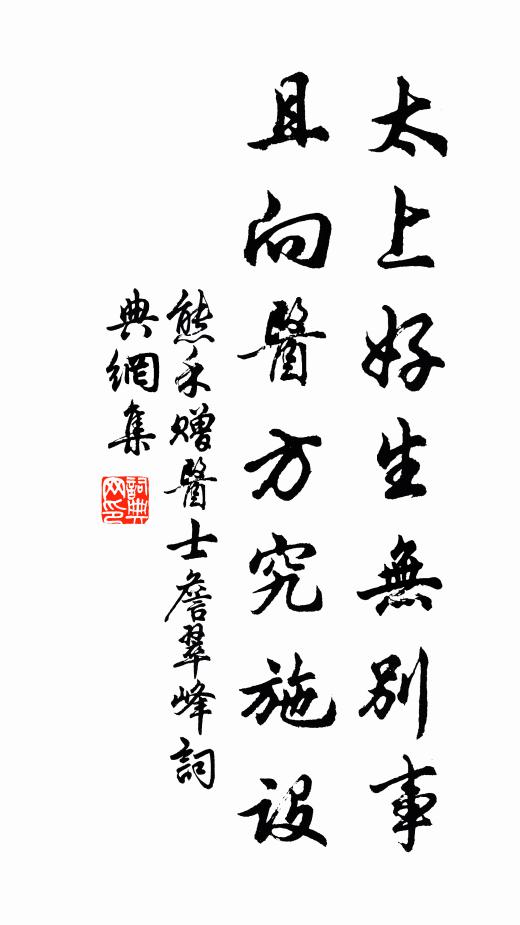 太上好生無別事
且向醫方究施設
熊禾贈醫士詹翠峰詞
典網集
詞典网印